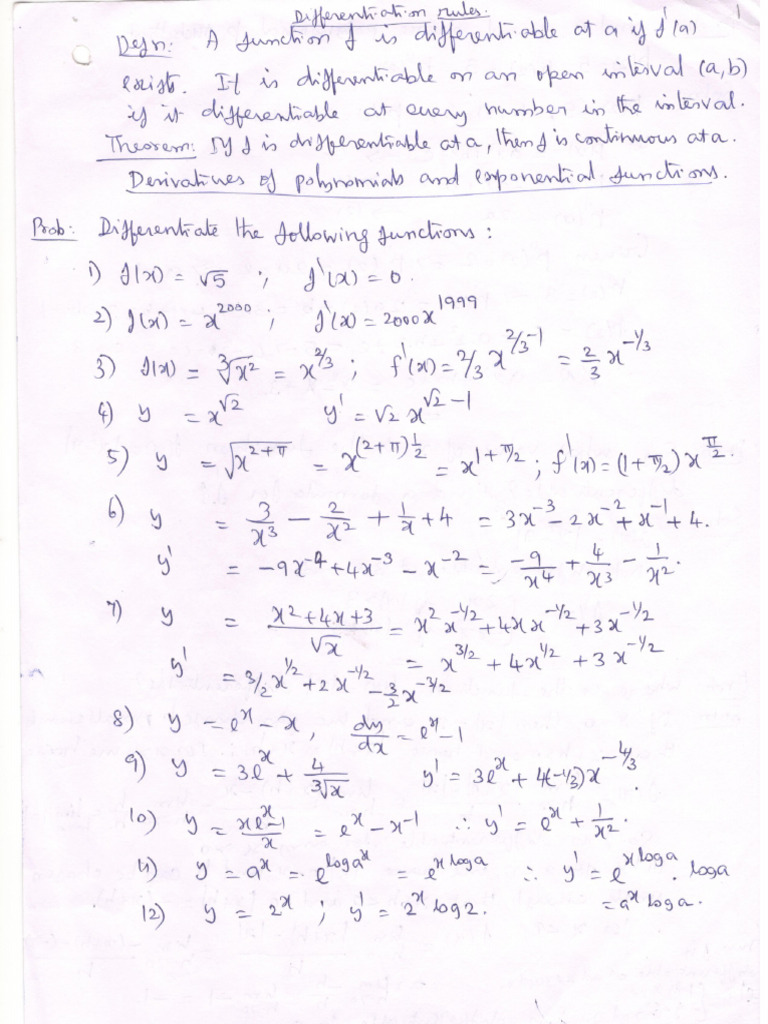 Differentiation rules. 1
Defn: A function f is differentiable at a if f'(a)
exists. It is differentiable on an open interval (a,b)
if it differentiable at every number in the interval.
Theorem: If f is differentiable at a, then f is continuous at a.
Derivatives of polynomials and exponential functions.
Prob: Differentiate the following functions:
1) f(x) = √5 ; f'(x) = 0
2) f(x) = x^2000 ; f'(x) = 2000x^1999
3) f(x) = ∛x² = x^(2/3) ; f'(x) = 2/3 x^(2/3-1) = 2/3 x^(-1/3)
4) y = x^√2 y' = √2 x^(√2-1)
5) y = √(x^(2+π)) = x^((2+π)1/2) = x^(1+π/2) ; f'(x) = (1+π/2) x^(π/2).
6) y = 3/x³ - 2/x² + 1/x + 4 = 3x^-3 - 2x^-2 + x^-1 + 4.
y' = -9x^-4 + 4x^-3 - x^-2 = -9/x⁴ + 4/x³ - 1/x².
7) y = (x²+4x+3)/√x = x² x^(-1/2) + 4x x^(-1/2) + 3x^(-1/2)
= x^(3/2) + 4x^(1/2) + 3x^(-1/2)
y' = 3/2 x^(1/2) + 2x^(-1/2) - 3/2 x^(-3/2)
8) y = e^x - x, dy/dx = e^x - 1
9) y = 3e^x + 4/∛x y' = 3e^x + 4(-1/3)x^(-4/3).
10) y = (xe^x-1)/x = e^x - x^-1 ∴ y' = e^x + 1/x².
11) y = a^x = e^(log a^x) = e^(x log a) ∴ y' = e^(x log a) . log a
= a^x log a.
12) y = 2^x ; y = 2^x log 2.